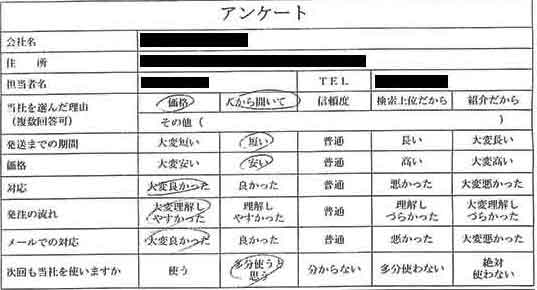 アンケート
会社名
住 所
担当者名 TEL
当社を選んだ理由 価格 人から聞いて 信頼度 検索上位だから 紹介だから
(複数回答可) その他 ( )
発送までの期間 大変短い 短い 普通 長い 大変長い
価格 大変安い 安い 普通 高い 大変高い
対応 大変良かった 良かった 普通 悪かった 大変悪かった
発注の流れ 大変理解し 理解し 普通 理解し 大変理解し
やすかった やすかった づらかった づらかった
メールでの対応 大変良かった 良かった 普通 悪かった 大変悪かった
次回も当社を使いますか 使う 多分使うと 分からない 多分使わない 絶対
思う 使わない